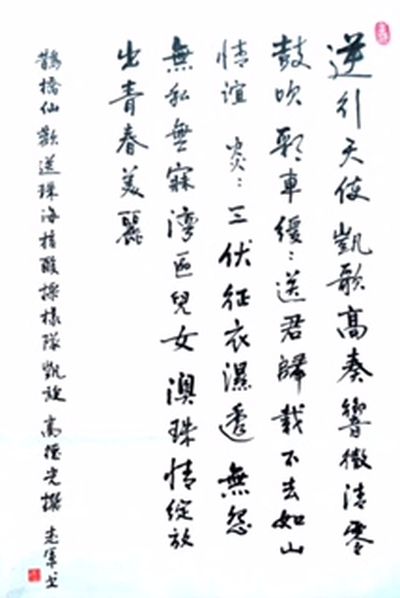 逆行天使凱歌高奏響徹清零
鼓吹郵車緩緩送君歸載不去如山
情誼 炎炎三伏征衣濕透無怨
無私無寐灣區兒女澳珠情綻放
出青春美麗
鵲橋仙歡送珠海核酸採樣隊凱旋 高 光撰 志軍书